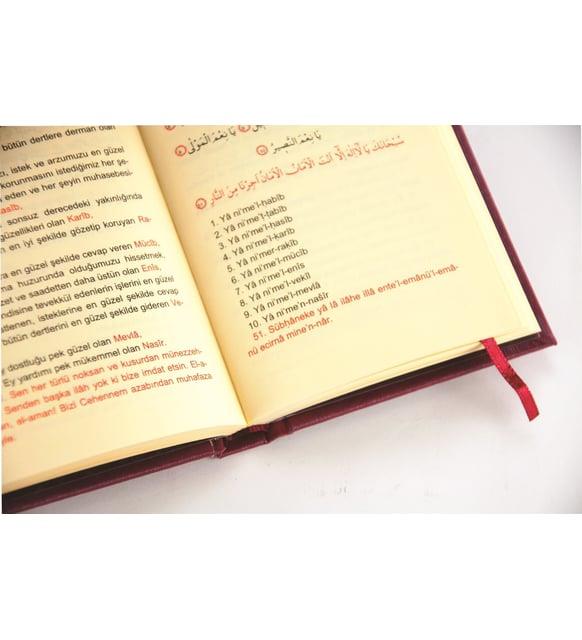 bütün dertlere derman olan
istek ve arzumuzu en güzel
korunmasını istediğimiz her şe-
eden ve her şeyin muhasebesi-
sîb,
sonsuz derecedeki yakınlığında
güzellikleri olan Karîb,
en iyi şekilde gözetip koruyan Ra-
en güzel şekilde cevap veren Mücîb,
huzurunda olduğumuzu hissetmek,
zet ve saadetten daha üstün olan Enîs,
ndisine tevekkül edenlerin işlerini en güzel
istenen, isteklerine en güzel şekilde cevap
bütün dertlerini en güzel şekilde gideren Ve-
dostluğu pek güzel olan Mevlâ,
Ey yardımı pek mükemmel olan Nasîr.
Sen her türlü noksan ve kusurdan münezzeh-
Senden başka ilâh yok ki bize imdat etsin. El-a-
el-aman! Bizi Cehennem azabından muhafaza
يَا نِعْمَ الْمَوْلٰى
يَا نِعْمَ النَّصِيرُ
سُبْحَانَكَ يَا لَا اِلٰهَ اِلَّا اَنْتَ الْاَمَانُ الْاَمَانُ اَجِرْنَا مِنَ النَّارِ
1. Yâ ni'me'l-habîb
2. Yâ ni'me't-tabîb
3. Yâ ni'me'l-hasîb
4. Yâ ni'me'l-karîb
5. Yâ ni'mer-rakîb
6. Yâ ni'me'l-mücîb
7. Yâ ni'me'l-enîs
8. Yâ ni'me'l-vekîl
9. Yâ ni'me'l-mevlâ
10. Yâ ni'me'n-nasîr
51. Sübhâneke yâ lâ ilâhe illâ ente'l-emânü'l-emâ-
nü ecirnâ mine'n-nâr.